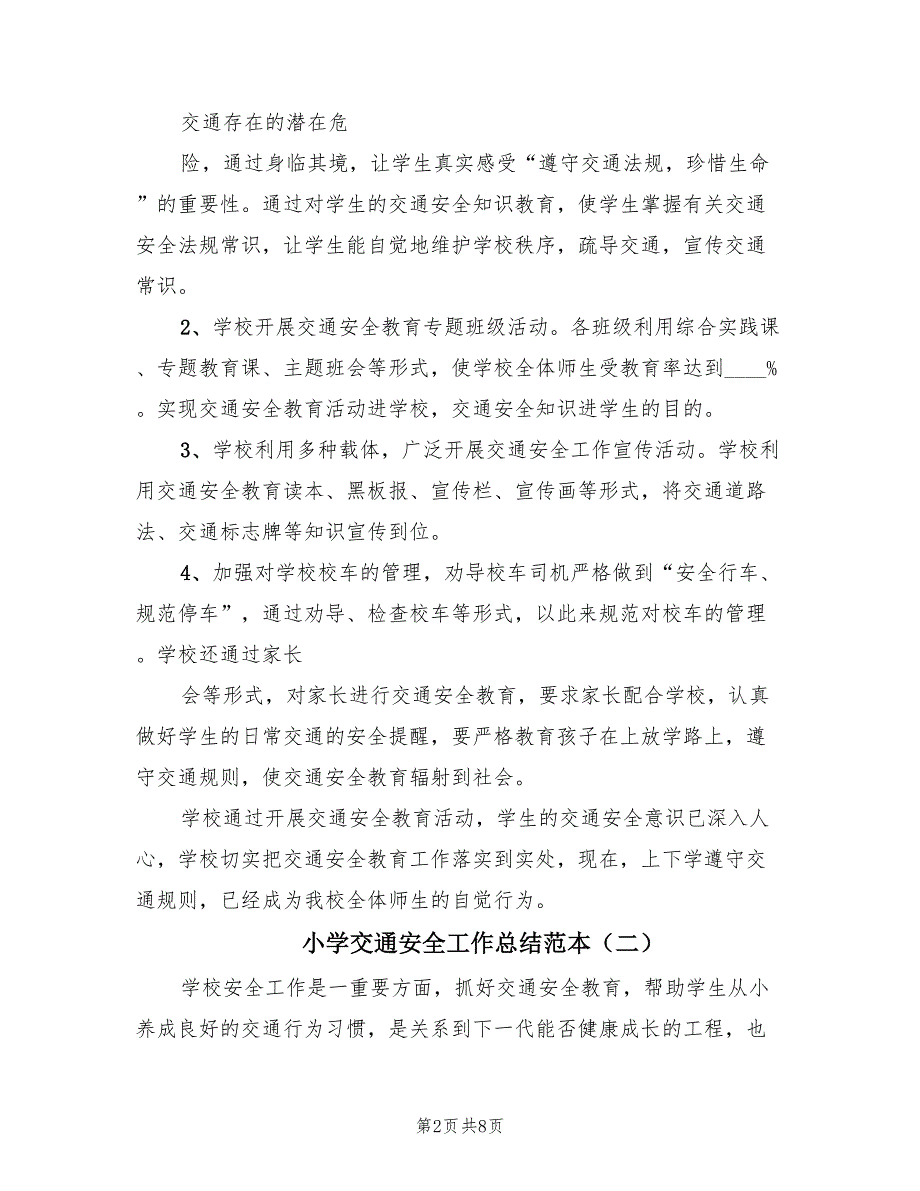 交通存在的潜在危
险，通过身临其境，让学生真实感受“遵守交通法规，珍惜生命
”的重要性。通过对学生的交通安全知识教育，使学生掌握有关交通
安全法规常识，让学生能自觉地维护学校秩序，疏导交通，宣传交通
常识。
2、学校开展交通安全教育专题班级活动。各班级利用综合实践课
、专题教育课、主题班会等形式，使学校全体师生受教育率达到____%
。实现交通安全教育活动进学校，交通安全知识进学生的目的。
3、学校利用多种载体，广泛开展交通安全工作宣传活动。学校利
用交通安全教育读本、黑板报、宣传栏、宣传画等形式，将交通道路
法、交通标志牌等知识宣传到位。
4、加强对学校校车的管理，劝导校车司机严格做到“安全行车、
规范停车”，通过劝导、检查校车等形式，以此来规范对校车的管理
。学校还通过家长
会等形式，对家长进行交通安全教育，要求家长配合学校，认真
做好学生的日常交通的安全提醒，要严格教育孩子在上放学路上，遵
守交通规则，使交通安全教育辐射到社会。
学校通过开展交通安全教育活动，学生的交通安全意识已深入人
心，学校切实把交通安全教育工作落实到实处，现在，上下学遵守交
通规则，已经成为我校全体师生的自觉行为。
小学交通安全工作总结范本（二）
学校安全工作是一重要方面，抓好交通安全教育，帮助学生从小
养成良好的交通行为习惯，是关系到下一代能否健康成长的工程，也
第2页 共8页